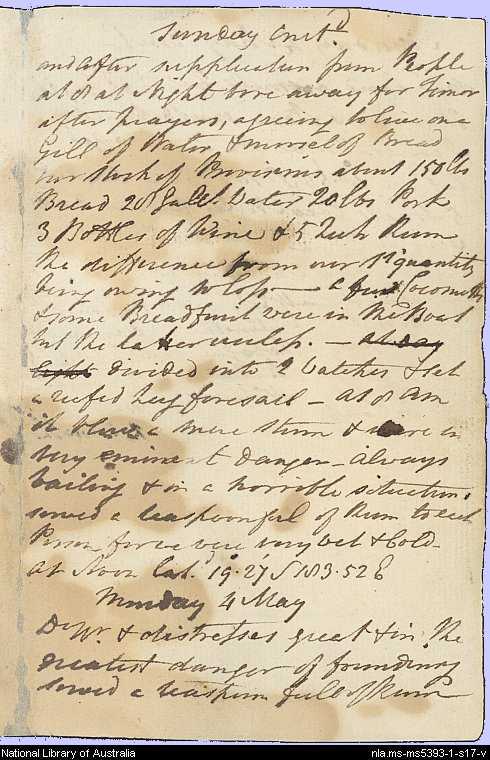 Sunday Contd
and after supplication from People
at 8 at Night bore away for Timor
after prayers, agreeing to live on a
Gill of Water & morsel of Bread
our Stock of Provisions about 150 lbs
Bread 28 Galls. Water 20 lbs Pork
3 Bottles of Wine & 5 Quts Rum
The difference from our 1st quantity
being owing to loss — a few Coconuts
& some Breadfruit were in the Boat
but the latter useless. — at day
light divided into 2 Watches & set
a reefed lug foresail — at 8 am
it blew a mere storm & were in
very eminent danger — always
bailing & in a horrible situation.
served a teaspoonful of Rum to each
Person for we were very wet & Cold
At Noon Lat. 19.27 S 183.52 E
Monday 4 May
Do Wr. & distresses great & in the
greatest danger of foundering
served a teaspoon full of Rum
National Library of Australia
nla.ms-ms5393-1-s17-v